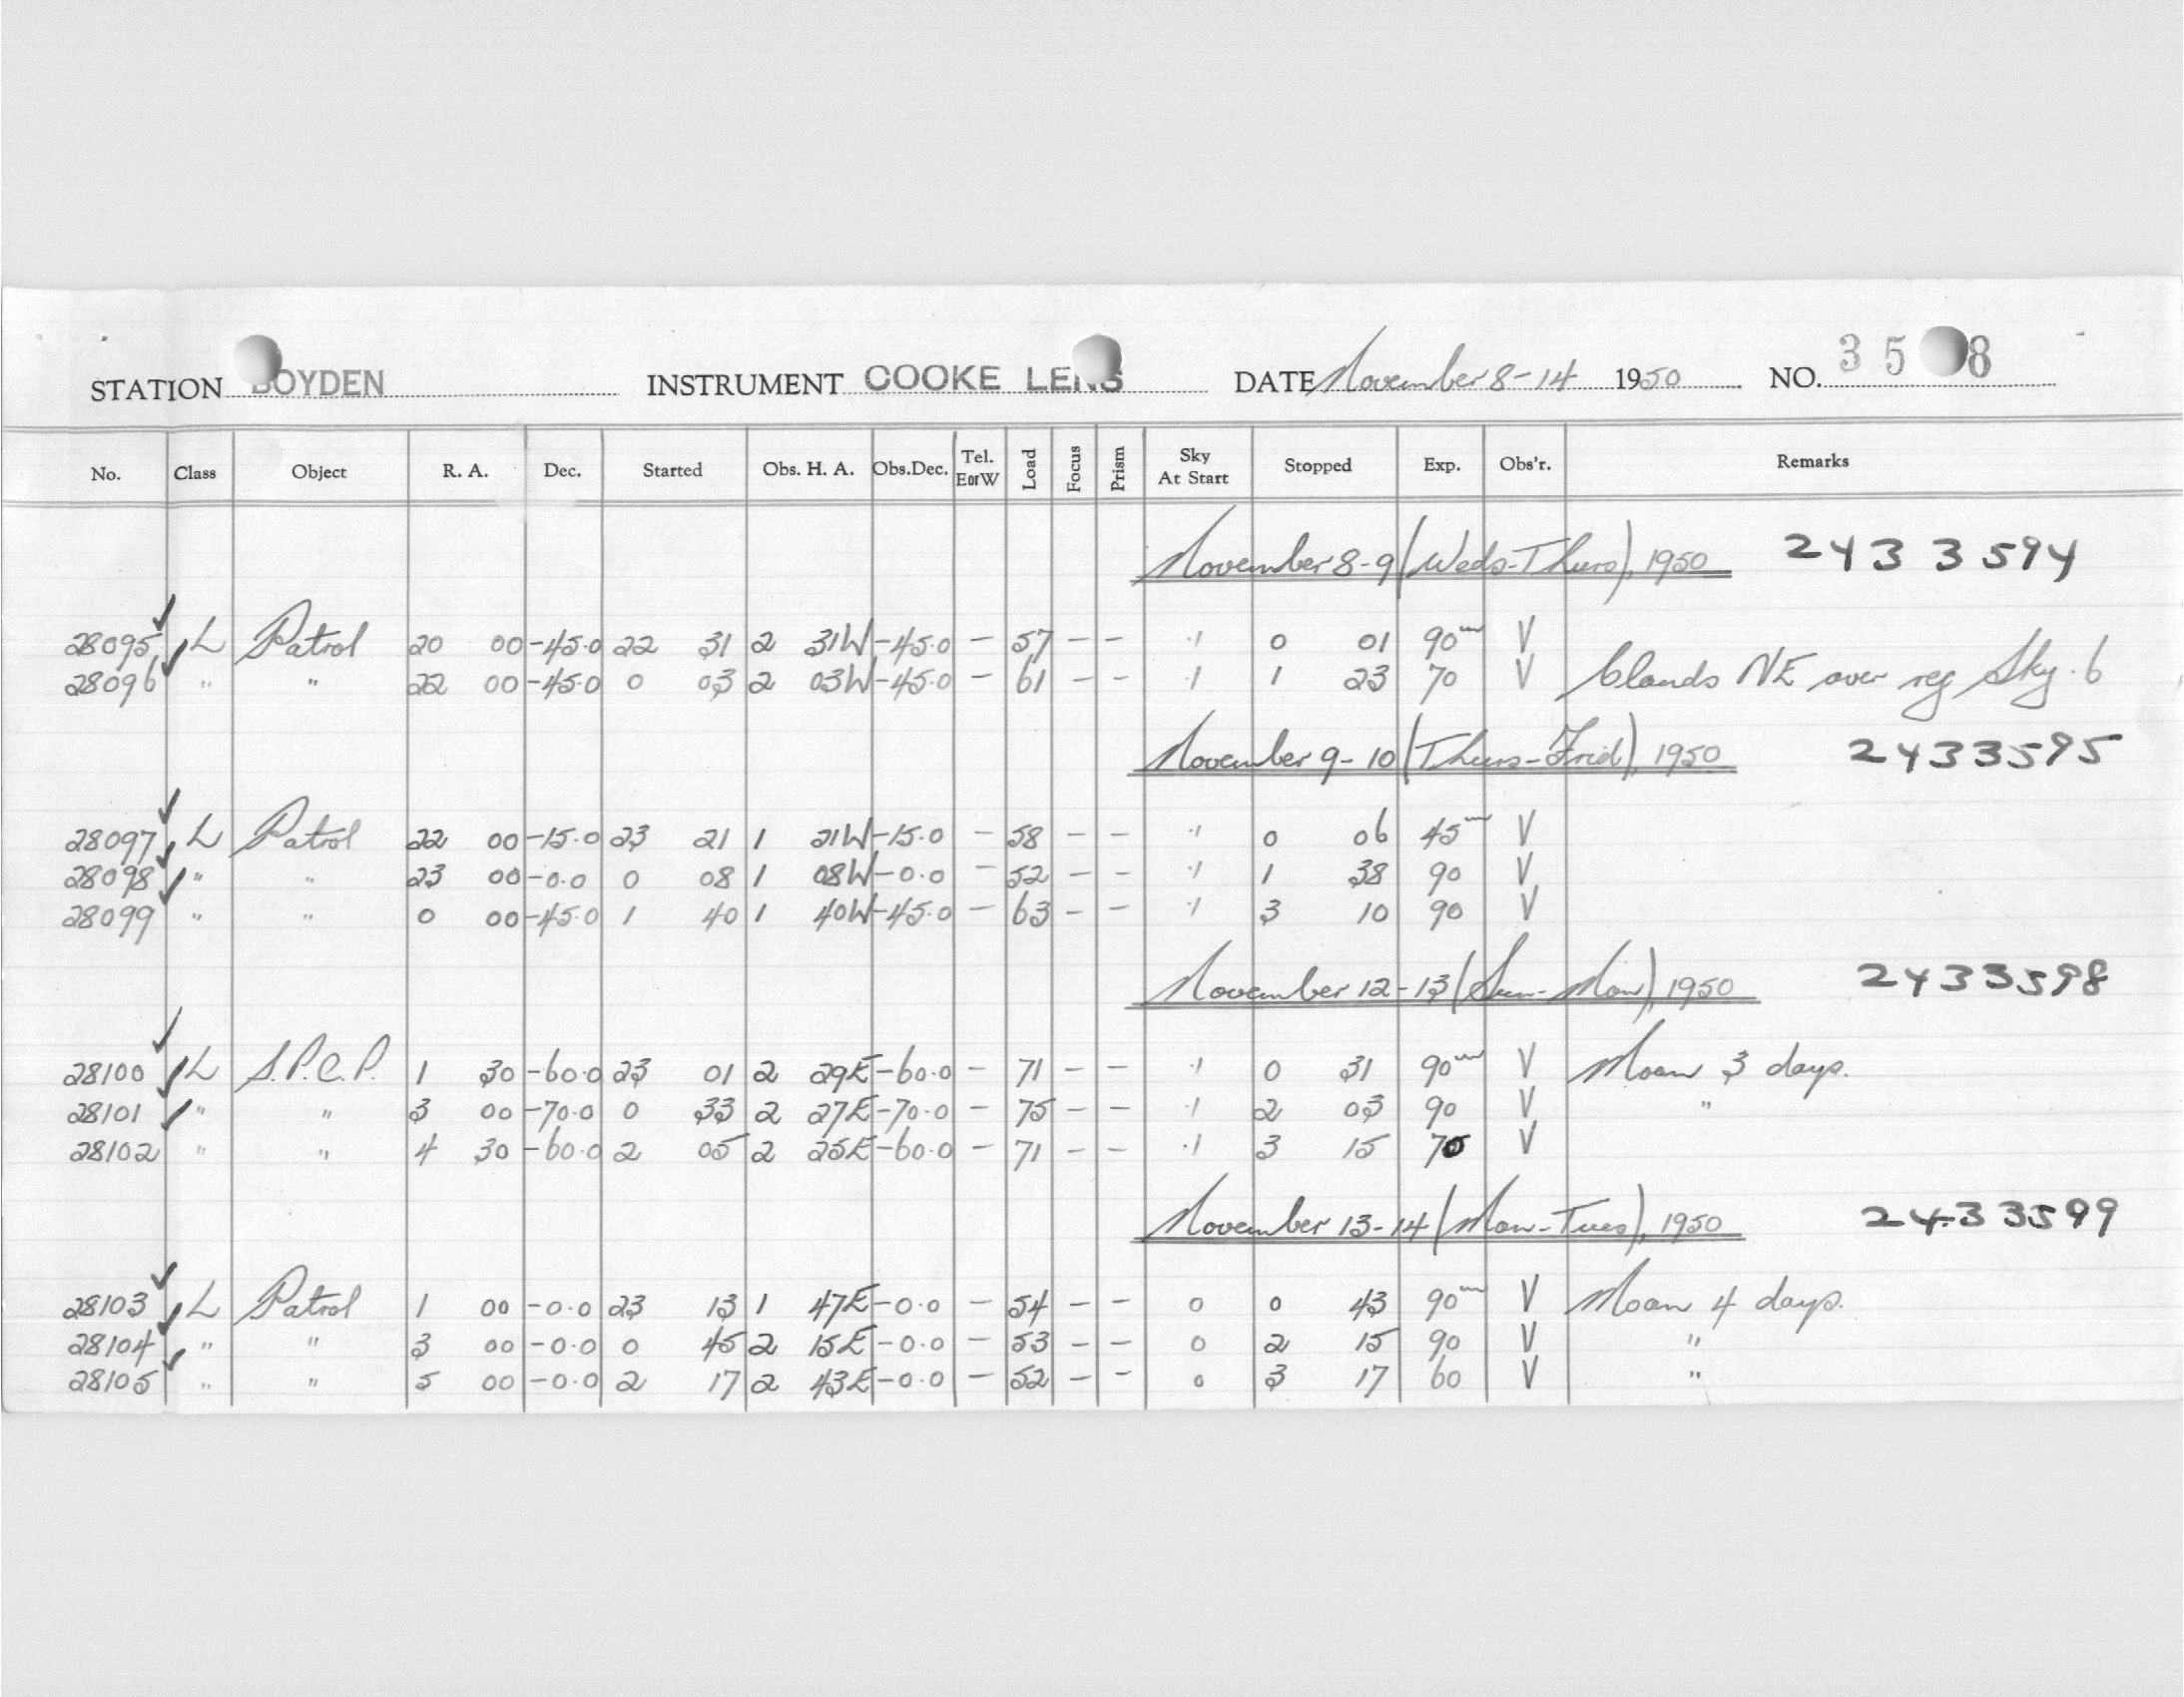 STATION BOYDEN INSTRUMENT COOKE LENS DATE November 8-14 1950 NO. 35 8
No. Class Object R. A. Dec. Started Obs. H. A. Obs.Dec. Tel. EorW Load Focus Prism Sky At Start Stopped Exp. Obs'r. Remarks
November 8-9 (Weds-Thurs), 1950 2433594
28095 L Patrol 20 00 -45.0 22 31 2 31W -45.0 - 57 - - .1 0 01 90m V
28096 " " 22 00 -45.0 0 03 2 03W -45.0 - 61 - - .1 1 23 70 V Clouds NE over reg Sky .6
November 9-10 (Thurs-Frid), 1950 2433595
28097 L Patrol 22 00 -15.0 23 21 1 21W -15.0 - 58 - - .1 0 06 45m V
28098 " " 23 00 -0.0 0 08 1 08W -0.0 - 52 - - .1 1 38 90 V
28099 " " 0 00 -45.0 1 40 1 40W -45.0 - 63 - - .1 3 10 90 V
November 12-13 (Sun-Mon), 1950 2433598
28100 L S.P.C.P. 1 30 -60.0 23 01 2 29E -60.0 - 71 - - .1 0 31 90m V Moon 3 days.
28101 " " 3 00 -70.0 0 33 2 27E -70.0 - 75 - - .1 2 03 90 V "
28102 " " 4 30 -60.0 2 05 2 25E -60.0 - 71 - - .1 3 15 70 V
November 13-14 (Mon-Tues), 1950 2433599
28103 L Patrol 1 00 -0.0 23 13 1 47E -0.0 - 54 - - 0 0 43 90m V Moon 4 days.
28104 " " 3 00 -0.0 0 45 2 15E -0.0 - 53 - - 0 2 15 90 V "
28105 " " 5 00 -0.0 2 17 2 43E -0.0 - 52 - - 0 3 17 60 V "